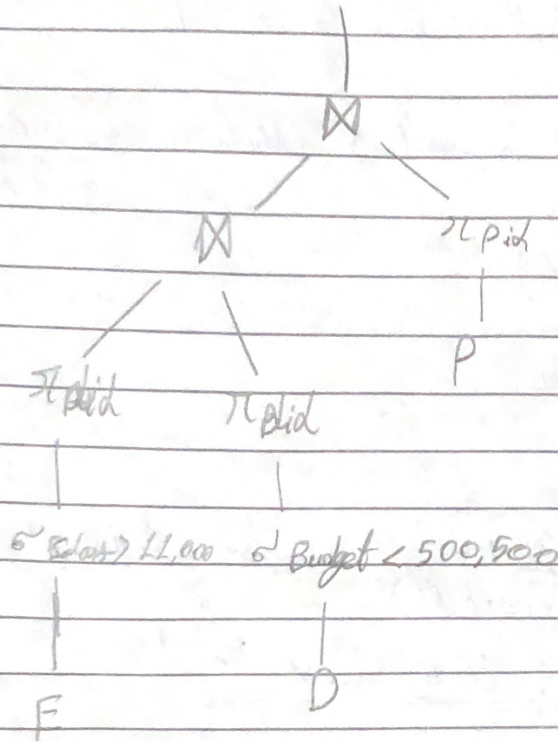 ⋈
⋈ π pid
P
π did π did
σ Salary > 11,000 σ Budget < 500,500
E D